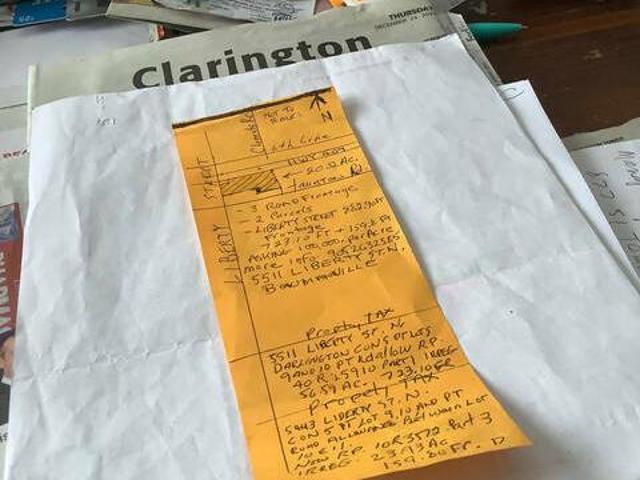 THURSDAY
DECEMBER 24, 20
Clarington
NOT TO
SCALE:
N
6th Line
STREET
HWY 407
← 20.2 Ac.
TAUNTON Rd
LIBERTY
- 3 ROAD FRONTAGE
- 2 PARCELS
- LIBERTY STREET 882.90FT
Frontage
723.10 FT + 159.8
ASKING 100,000. Per Acre,
more info 9052632585
5511 LIBERTY ST N.
BOWMANVILLE
Property TAX
5511 LIBERTY ST. N
DARLINGTON CON 5 PT LTS
9 AND 10 PT Rd allow RP
40 R 25910 PART 1 IRREG
723.10 FR
Property TAX
5443 LIBERTY ST. N.
CON 5 PT LOT 9,10 AND PT
ROAD ALLOWANCE BETWEEN LOT
10 & 11.
NOW RP 10R3572 Part 3
IRREG. 23.93 AC
159.80 FR. D